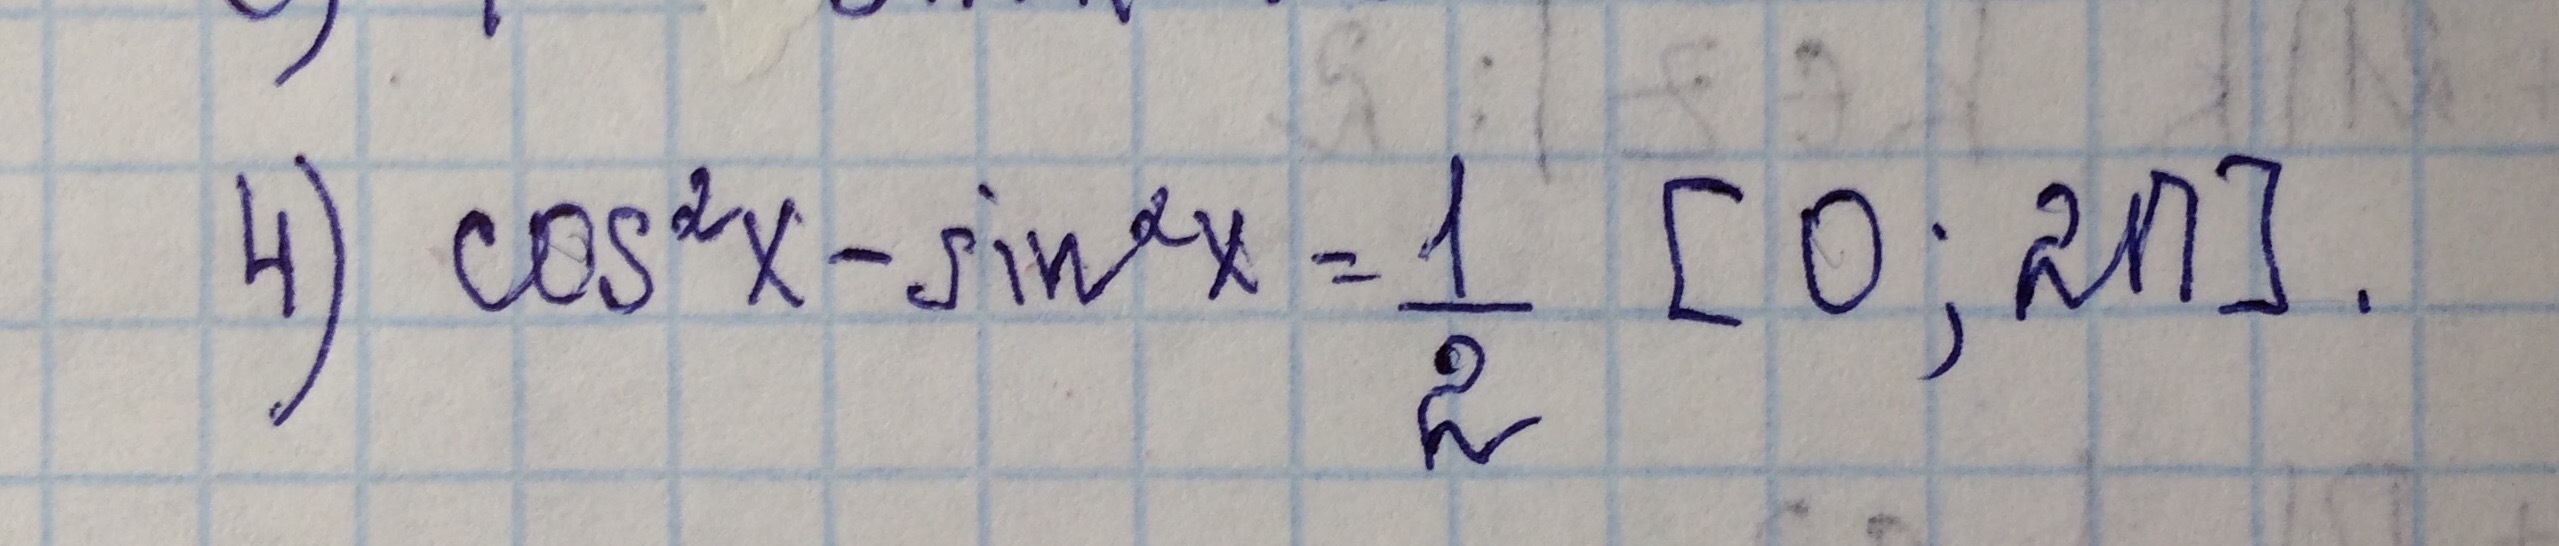 4) cos²x - sin²x = 1/2 [0; 2π].